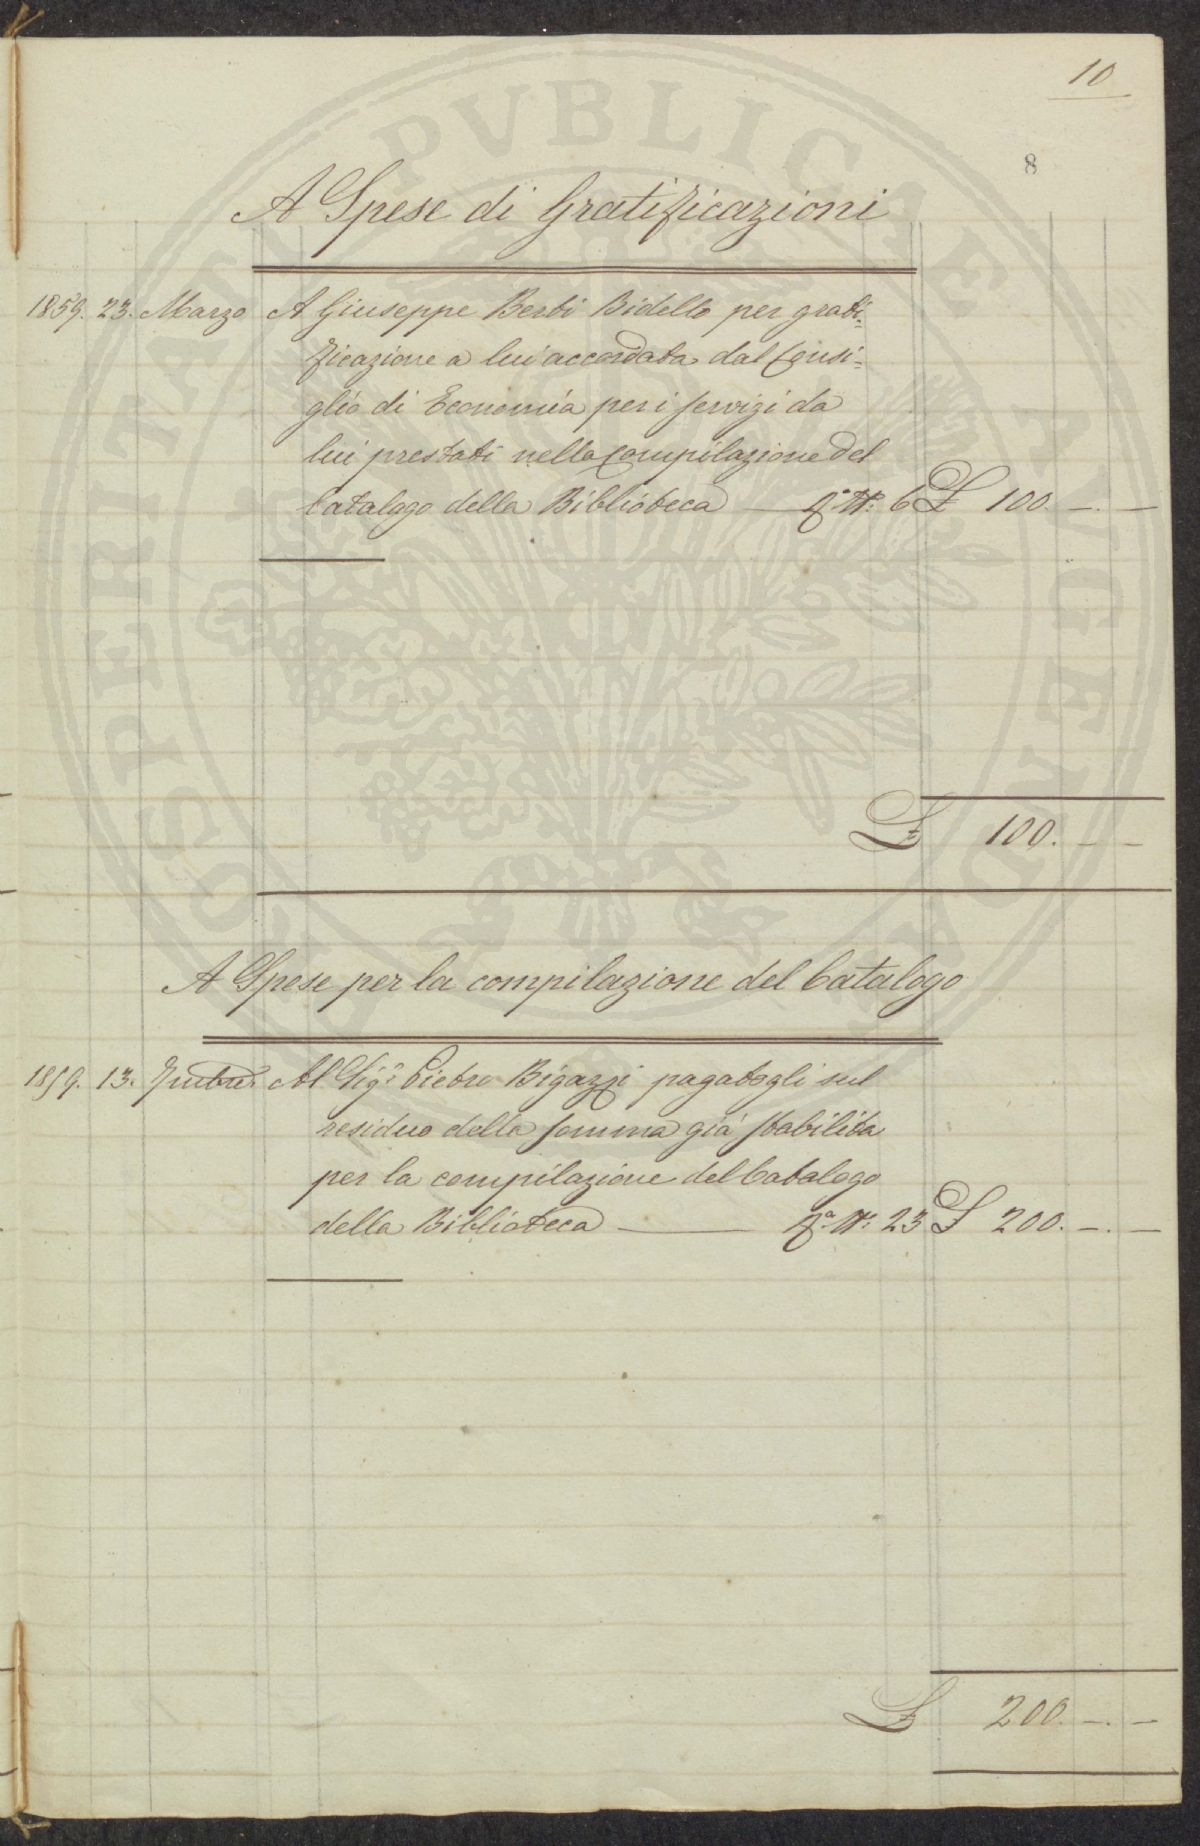 10
8
A Spese di Gratificazioni
1859. 23. Marzo A Giuseppe Berti Bidello per grati=
ficazione a lui accordata dal Consi=
glio di Economia per i servizi da
lui prestati nella Compilazione del
Catalogo della Biblioteca — Qa. N. 6 £ 100. —. —
£ 100. — —
A Spese per la compilazione del Catalogo
1859. 13. Al Sigr. Pietro Bigazzi pagatogli sul
residuo della somma già stabilita
per la compilazione del Catalogo
della Biblioteca — Qa. N. 23 £ 200. —. —
£ 200. —. —
PROSPERITATI PVBLICAE AVGENDAE